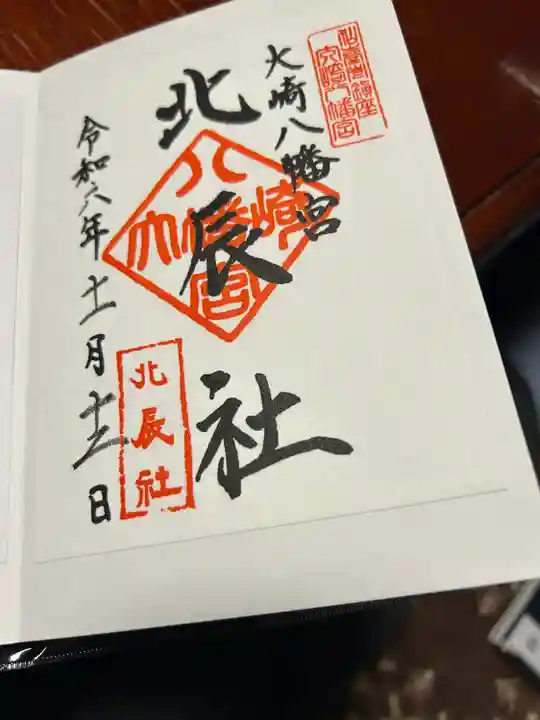 仙臺市鎮座
大崎八幡宮
大崎八幡宮
北辰社
大崎八幡宮
北辰社
令和六年十一月十三日